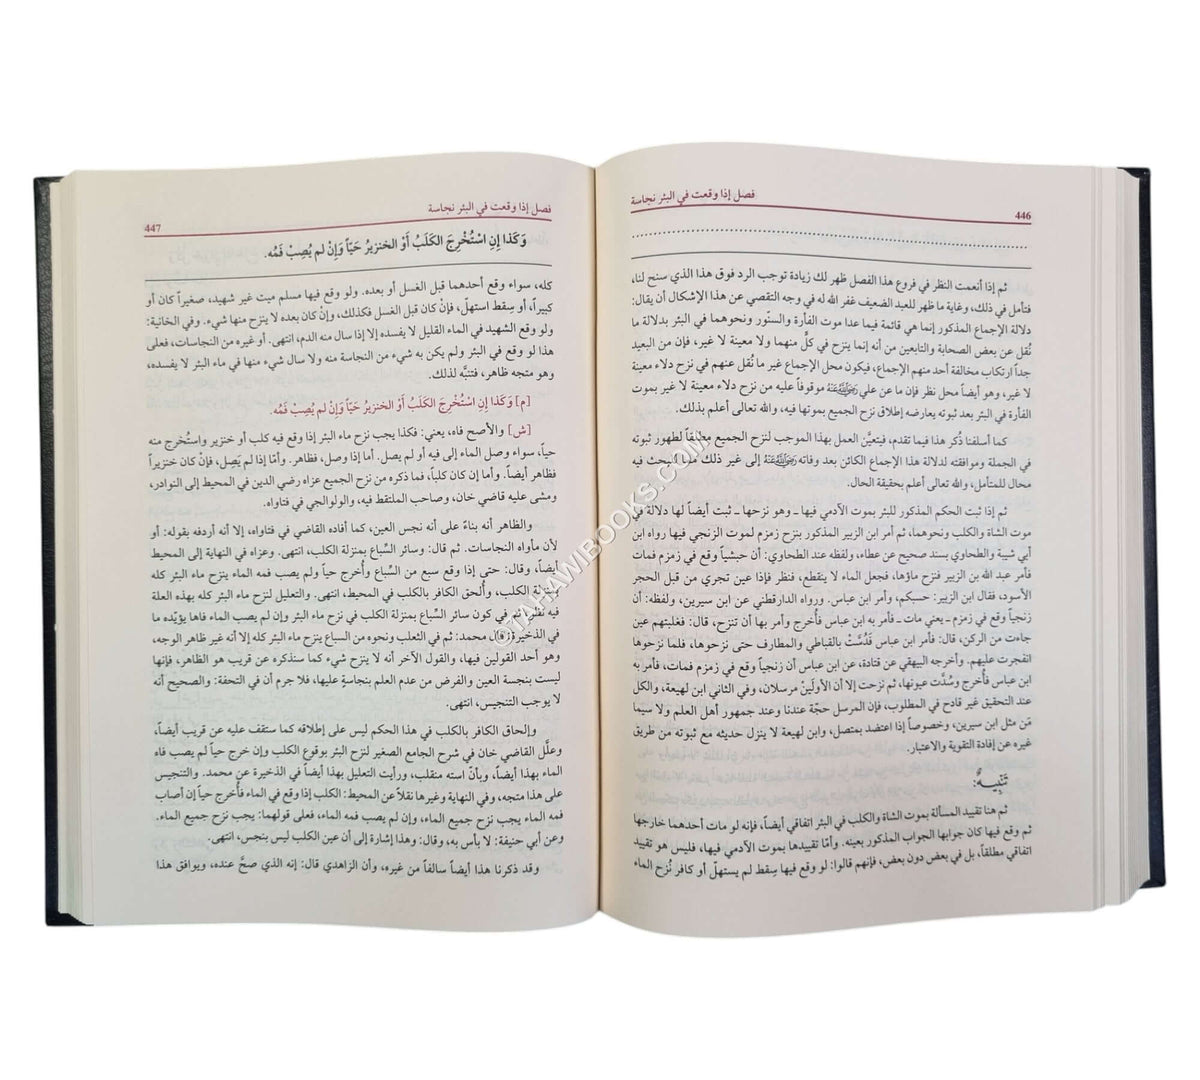 446
فصل إذا وقعت في البئر نجاسة
ثم إذا أنعمت النظر في فروع هذا الفصل ظهر لك زيادة توجب الرد فوق هذا الذي سنح لنا،
فتأمل في ذلك، وغاية ما ظهر للعبد الضعيف غفر الله له في وجه التقصي عن هذا الإشكال أن يقال:
دلالة الإجماع المذكور إنما هي قائمة فيما عدا موت الفأرة والسنّور ونحوهما في البئر بدلالة ما
نُقل عن بعض الصحابة والتابعين من أنه إنما ينزح في كلٍّ منهما ولا معينة لا غير، فإن من البعيد
جداً ارتكاب مخالفة أحد منهم الإجماع، فيكون محل الإجماع غير ما نُقل عنهم في نزح دلاء معينة
لا غير، وهو أيضاً محل نظر فإن ما عن علي رَضِيَ اللهُ عَنْهُ موقوفاً عليه من نزح دلاء معينة لا غير بموت
الفأرة في البئر بعد ثبوته يعارضه إطلاق نزح الجميع بموتها فيه، والله تعالى أعلم بذلك.
كما أسلفنا ذُكر هذا فيما تقدم، فيتعيَّن العمل بهذا الموجب لنزح الجميع مطلقاً لطهور ثبوته
في الجملة وموافقته لدلالة هذا الإجماع الكائن بعد وفاته رَضِيَ اللهُ عَنْهُ إلى غير ذلك مما للبحث فيه
مجال للمتأمل، والله تعالى أعلم بحقيقة الحال.
ثم إذا ثبت الحكم المذكور للبئر بموت الآدمي فيها ـ وهو نزحها ـ ثبت أيضاً لها دلالة في
موت الشاة والكلب ونحوهما، ثم أمر ابن الزبير المذكور بنزح زمزم لموت الزنجي فيها رواه ابن
أبي شيبة والطحاوي بسند صحيح عن عطاء، ولفظه عند الطحاوي: أن حبشياً وقع في زمزم فمات
فأمر عبد الله بن الزبير فنزح ماؤها، فجعل الماء لا ينقطع، فنظر فإذا عين تجري من قبل الحجر
الأسود، فقال ابن الزبير: حسبكم، وأمر ابن عباس. ورواه الدارقطني عن ابن سيرين، ولفظه: أن
زنجياً وقع في زمزم ـ يعني مات ـ فأمر به ابن عباس فأُخرج وأمر بها أن تنزح، قال: فغلبتهم عين
جاءت من الركن، قال: فأمر ابن عباس فَدُسَّتْ بالقباطي والمطارف حتى نزحوها، فلما نزحوها
انفجرت عليهم. وأخرجه البيهقي عن قتادة، عن ابن عباس أن زنجياً وقع في زمزم فمات، فأمر به
ابن عباس فأُخرج وسُدَّت عيونها، ثم نزحت إلا أن الأولَيْن مرسلان، وفي الثاني ابن لهيعة، والكل
عند التحقيق غير قادح في المطلوب، فإن المرسل حجّة عندنا وعند جمهور أهل العلم ولا سيما
مَن مثل ابن سيرين، وخصوصاً إذا اعتضد بمتصل، وابن لهيعة لا ينزل حديثه مع ثبوته من طريق
غيره عن إفادة التقوية والاعتبار.
تَنْبِيهٌ:
ثم هنا تقييد المسألة بموت الشاة والكلب في البئر اتفاقي أيضاً، فإنه لو مات أحدهما خارجها
ثم وقع فيها كان جوابها الجواب المذكور بعينه. وأمّا تقييدها بموت الآدمي فيها، فليس هو تقييد
اتفاقي مطلقاً، بل في بعض دون بعض، فإنهم قالوا: لو وقع فيها سِقط لم يستهلّ أو كافر نُزح الماء
فصل إذا وقعت في البئر نجاسة
447
وَكَذا إِنِ اسْتُخْرِجَ الكَلَبُ أَوْ الخنزيرُ حَيّاً وَإِنْ لم يُصِبْ فَمُه.
كله، سواء وقع أحدهما قبل الغسل أو بعده. ولو وقع فيها مسلم ميت غير شهيد، صغيراً كان أو
كبيراً، أو سِقط استهلّ، فإن كان قبل الغسل فكذلك، وإنْ كان بعده لا ينزح منها شيء. وفي الخانية:
ولو وقع الشهيد في الماء القليل لا يفسده إلا إذا سال منه الدم، انتهى. أو غيره من النجاسات، فعلى
هذا لو وقع في البئر ولم يكن به شيء من النجاسة منه ولا سال شيء منها في ماء البئر لا يفسده،
وهو متجه ظاهر، فتنبَّه لذلك.
[م] وَكَذا إِنِ اسْتُخْرِجَ الكَلَبُ أَوْ الخنزيرُ حَيّاً وَإِنْ لم يُصِبْ فَمُه.
[ش] والأصح فاه، يعني: فكذا يجب نزح ماء البئر إذا وقع فيه كلب أو خنزير واستُخرج منه
حياً، سواء وصل الماء إلى فيه أو لم يصل. أما إذا وصل، فظاهر. وأمّا إذا لم يَصِل، فإن كان خنزيراً
فظاهر أيضاً. وأما إن كان كلباً، فما ذكره من نزح الجميع عزاه رضي الدين في المحيط إلى النوادر،
ومشى عليه قاضي خان، وصاحب الملتقط فيه، والولوالجي في فتاواه.
والظاهر أنه بناءً على أنه نجس العين، كما أفاده القاضي في فتاواه، إلا أنه أردفه بقوله: أو
لأن مأواه النجاسات. ثم قال: وسائر السِّباع بمنزلة الكلب، انتهى. وعزاه في النهاية إلى المحيط
أيضاً، وقال: حتى إذا وقع سبع من السِّباع وأُخرج حياً ولم يصب فمه الماء ينزح ماء البئر كله
بمنزلة الكلب، وأُلحق الكافر بالكلب في المحيط، انتهى. والتعليل لنزح ماء البئر كله بهذه العلة
فيه نظر، ثم في كون سائر السِّباع بمنزلة الكلب ينزح ماء البئر وإن لم يصب الماء فاها يؤيّده ما
في الذخيرة: قال محمد: ثم في الثعلب ونحوه من السباع ينزح ماء البئر كله إلا أنه غير ظاهر الوجه،
وهو أحد القولين فيها، والقول الآخر أنه لا ينزح شيء كما سنذكره عن قريب هو الظاهر، فإنها
ليست بنجسة العين والفرض من عدم العلم بنجاسةٍ عليها، فلا جرم أن في التحفة: والصحيح أنه
لا يوجب التنجيس، انتهى.
وإلحاق الكافر بالكلب في هذا الحكم ليس على إطلاقه كما ستقف عليه عن قريب أيضاً،
وعلَّل القاضي خان في شرح الجامع الصغير لنزح البئر بوقوع الكلب وإن خرج حياً لم يصب فاه
الماء بهذا أيضاً، وبأنّ استه منقلب، ورأيت التعليل بهذا أيضاً في الذخيرة عن محمد. والتنجيس
على هذا متجه، وفي النهاية وغيرها نقلاً عن المحيط: الكلب إذا وقع في الماء فأُخرج حياً إن أصاب
فمه الماء يجب نزح جميع الماء، وإن لم يصب فمه الماء، فعلى قولهما: يجب نزح جميع الماء.
وعن أبي حنيفة: لا بأس به، وقال: وهذا إشارة إلى أن عين الكلب ليس بنجس، انتهى.
وقد ذكرنا هذا أيضاً سالفاً من غيره، وأن الزاهدي قال: إنه الذي صحَّ عنده، ويوافق هذا
© TAHAWIBOOKS.COM